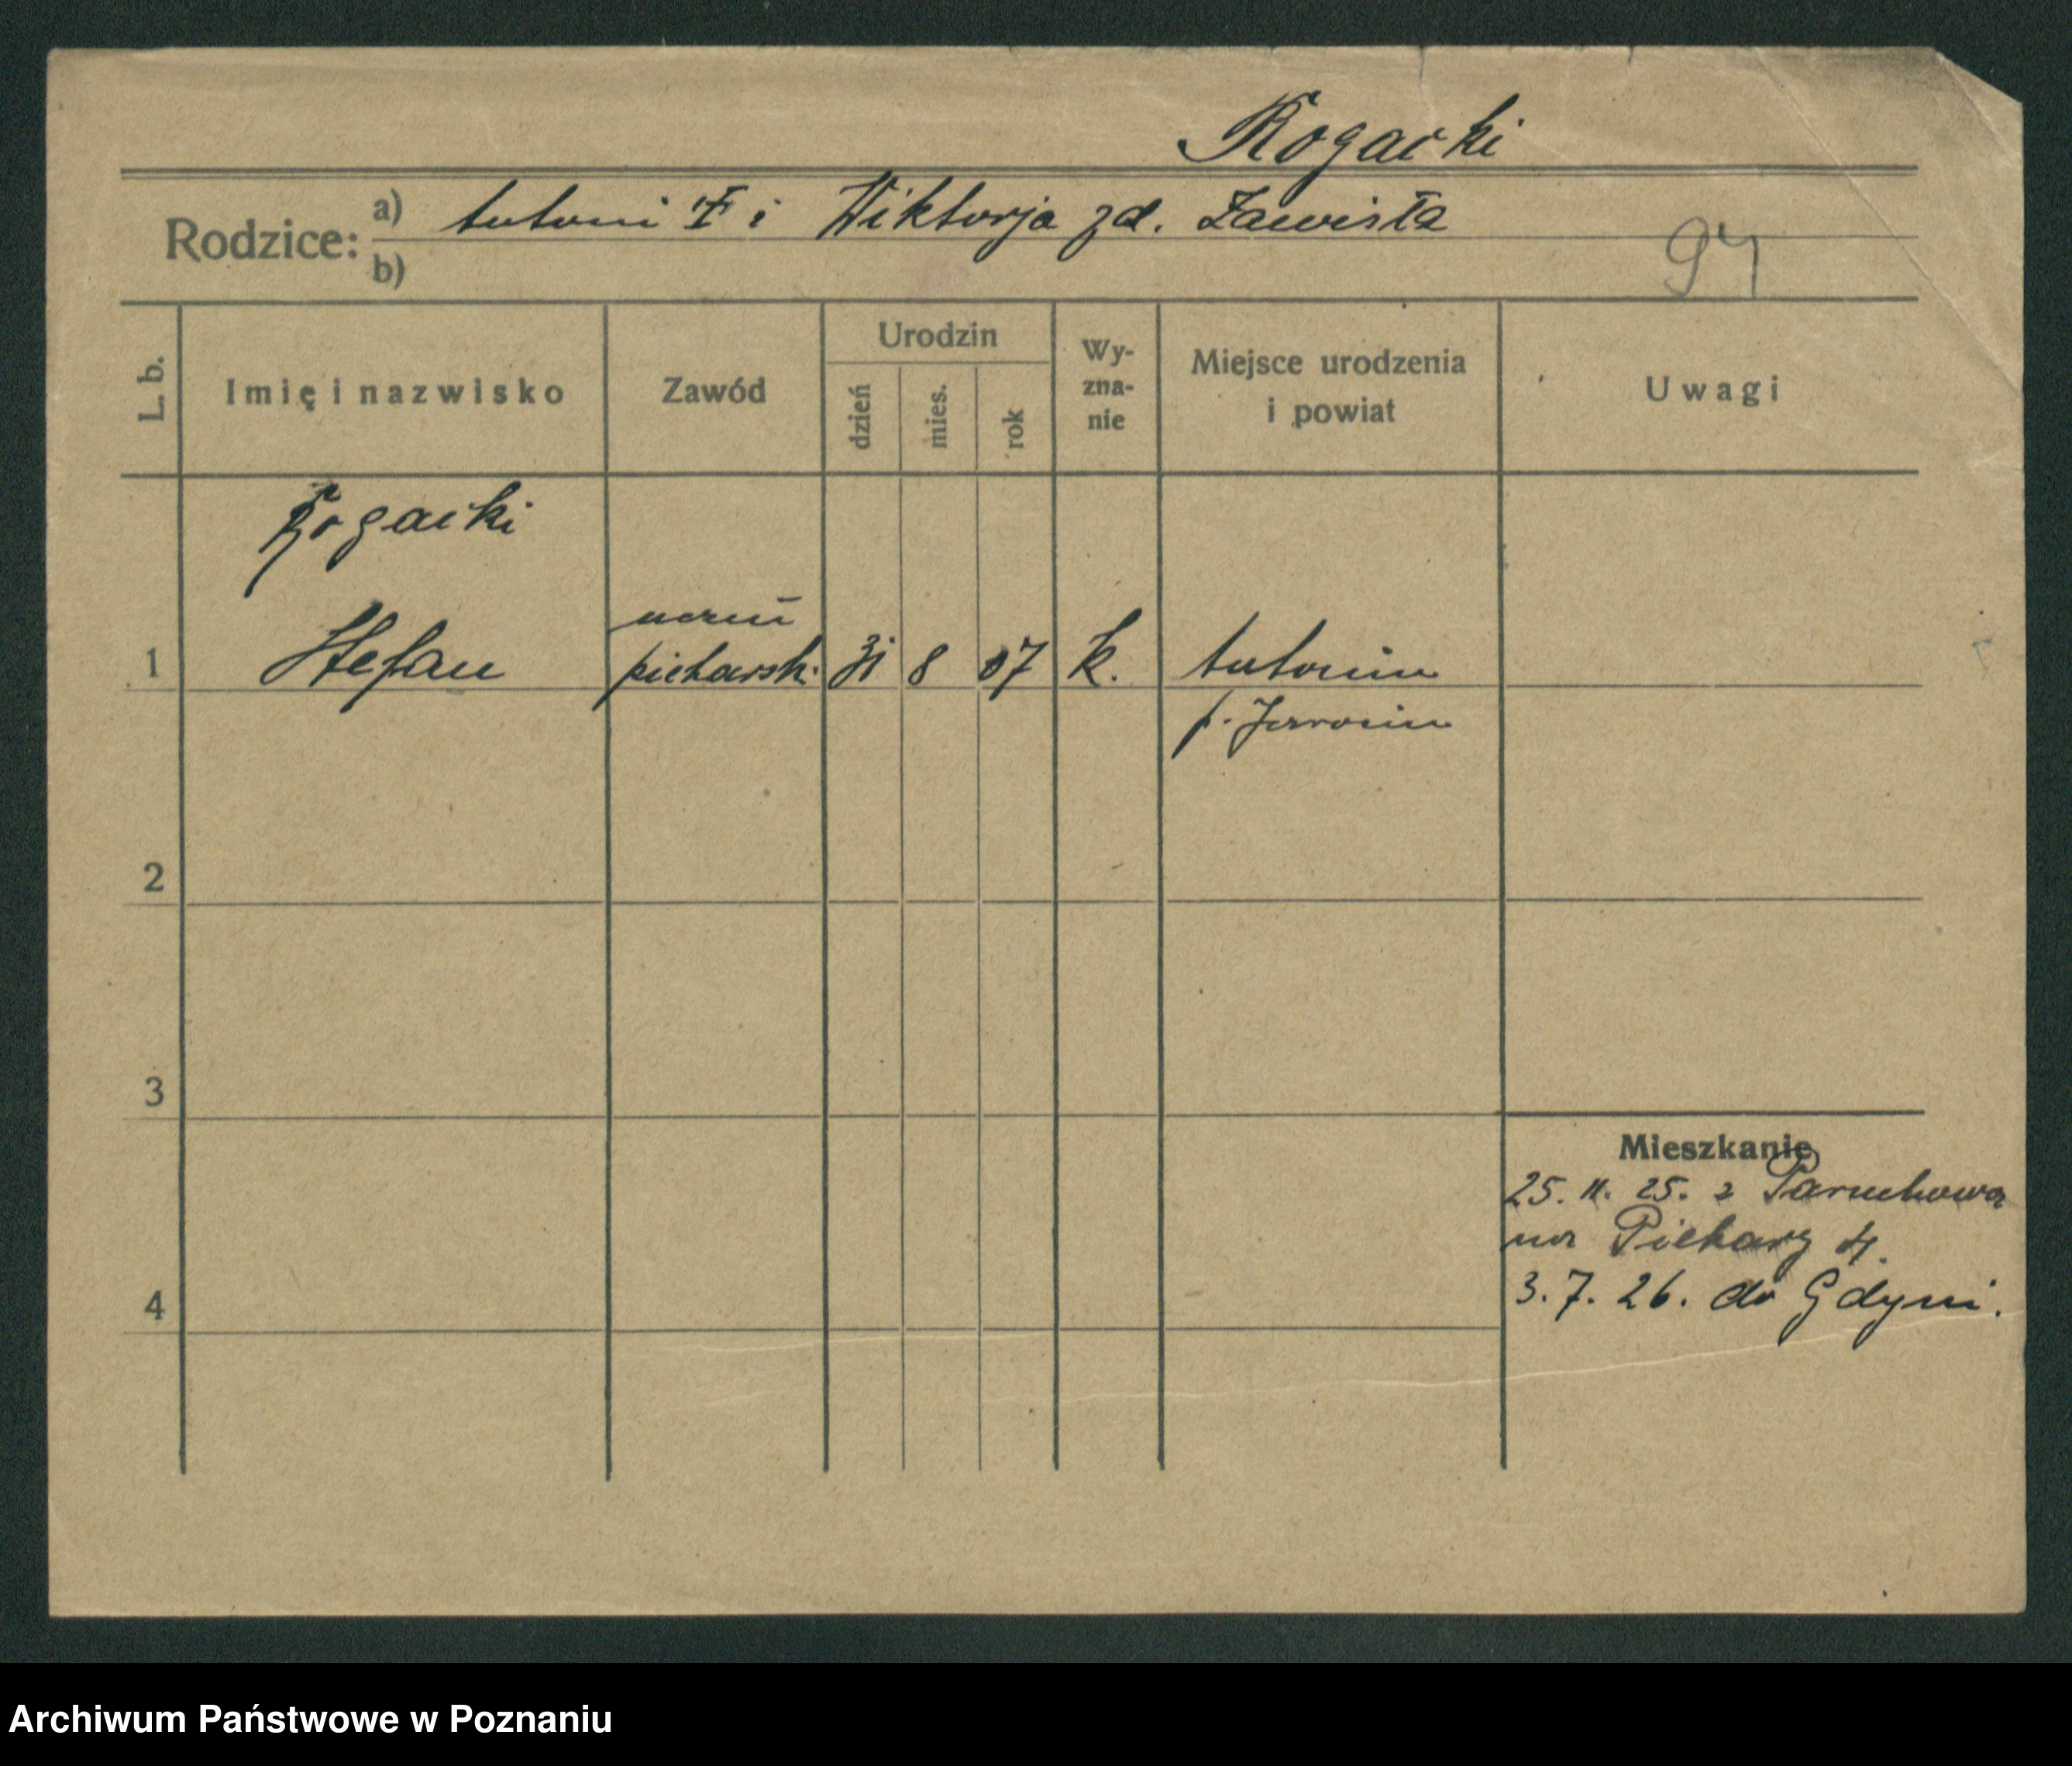 Rogacki
Rodzice: a) Antoni † i Wiktorja zd. Zawisła
b)
94
L. b. Imię i nazwisko Zawód Urodzin dzień mies. rok Wyznanie Miejsce urodzenia i powiat Uwagi
Rogacki
uczeń
1 Stefan piekarsk. 31 8 07 k. Antonin
p. Jarocin
2
3
Mieszkanie
25. 11. 25. z
na Piekary 4.
3. 7. 26. do Gdyni.
4
Archiwum Państwowe w Poznaniu